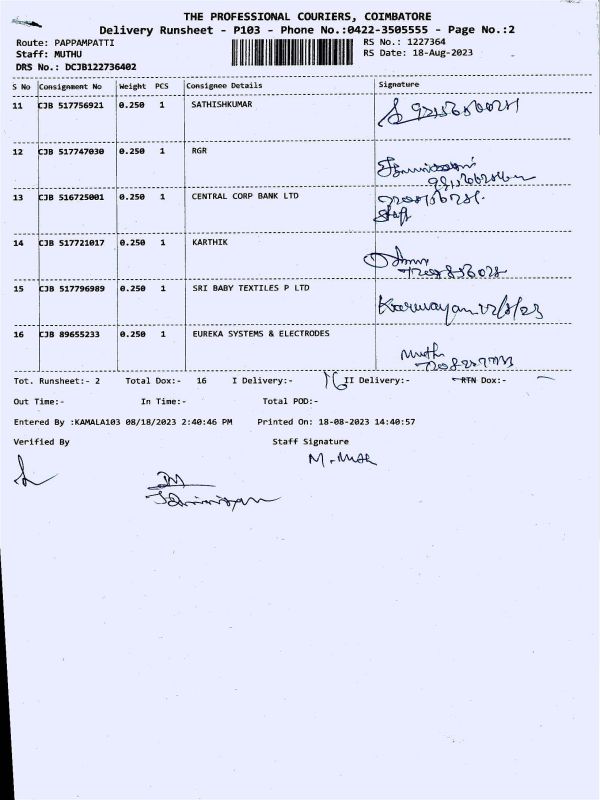 THE PROFESSIONAL COURIERS, COIMBATORE
Delivery Runsheet - P103 - Phone No.:0422-3505555 - Page No.:2
Route: PAPPAMPATTI RS No.: 1227364
Staff: MUTHU RS Date: 18-Aug-2023
DRS No.: DCJB122736402
S No Consignment No Weight PCS Consignee Details Signature
11 CJB 517756921 0.250 1 SATHISHKUMAR
12 CJB 517747030 0.250 1 RGR
13 CJB 516725001 0.250 1 CENTRAL CORP BANK LTD
Staff
14 CJB 517721017 0.250 1 KARTHIK
15 CJB 517796989 0.250 1 SRI BABY TEXTILES P LTD
16 CJB 89655233 0.250 1 EUREKA SYSTEMS & ELECTRODES
Muthu
Tot. Runsheet:- 2 Total Dox:- 16 I Delivery:- 16 II Delivery:- RTN Dox:-
Out Time:- In Time:- Total POD:-
Entered By :KAMALA103 08/18/2023 2:40:46 PM Printed On: 18-08-2023 14:40:57
Verified By Staff Signature